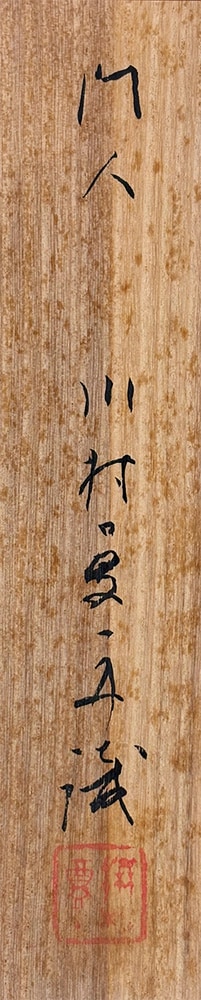 門人 川村曼舟識